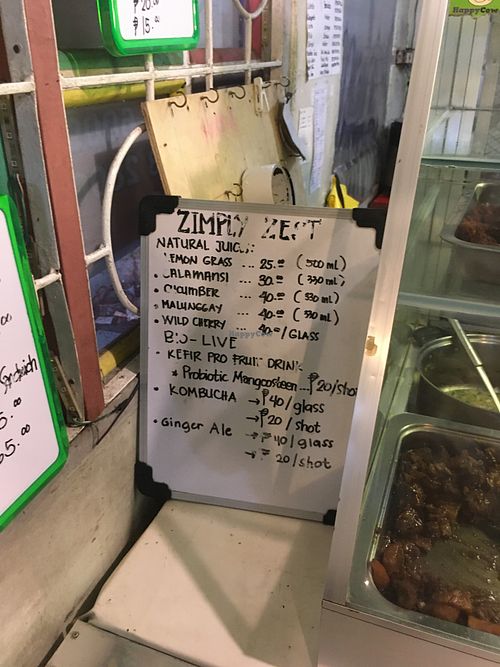 ₱20.00
₱15.00
HappyCow
ZIMPLY ZEST
NATURAL JUICES:
LEMON GRASS ... 25.00 (500 mL)
• CALAMANSI ... 30.00 (330 mL)
• CUCUMBER ... 40.00 (330 mL)
• MALUNGGAY ... 40.00 (330 mL)
• WILD CHERRY ... 40.00/GLASS
BIO-LIVE
• KEFIR PRO FRUIT DRINK
* Probiotic Mangosteen ... ₱20/shot
• KOMBUCHA → ₱40/glass
→ ₱20/shot
• Ginger Ale → ₱40/glass
→ ₱20/shot
HappyCow
Sandwich